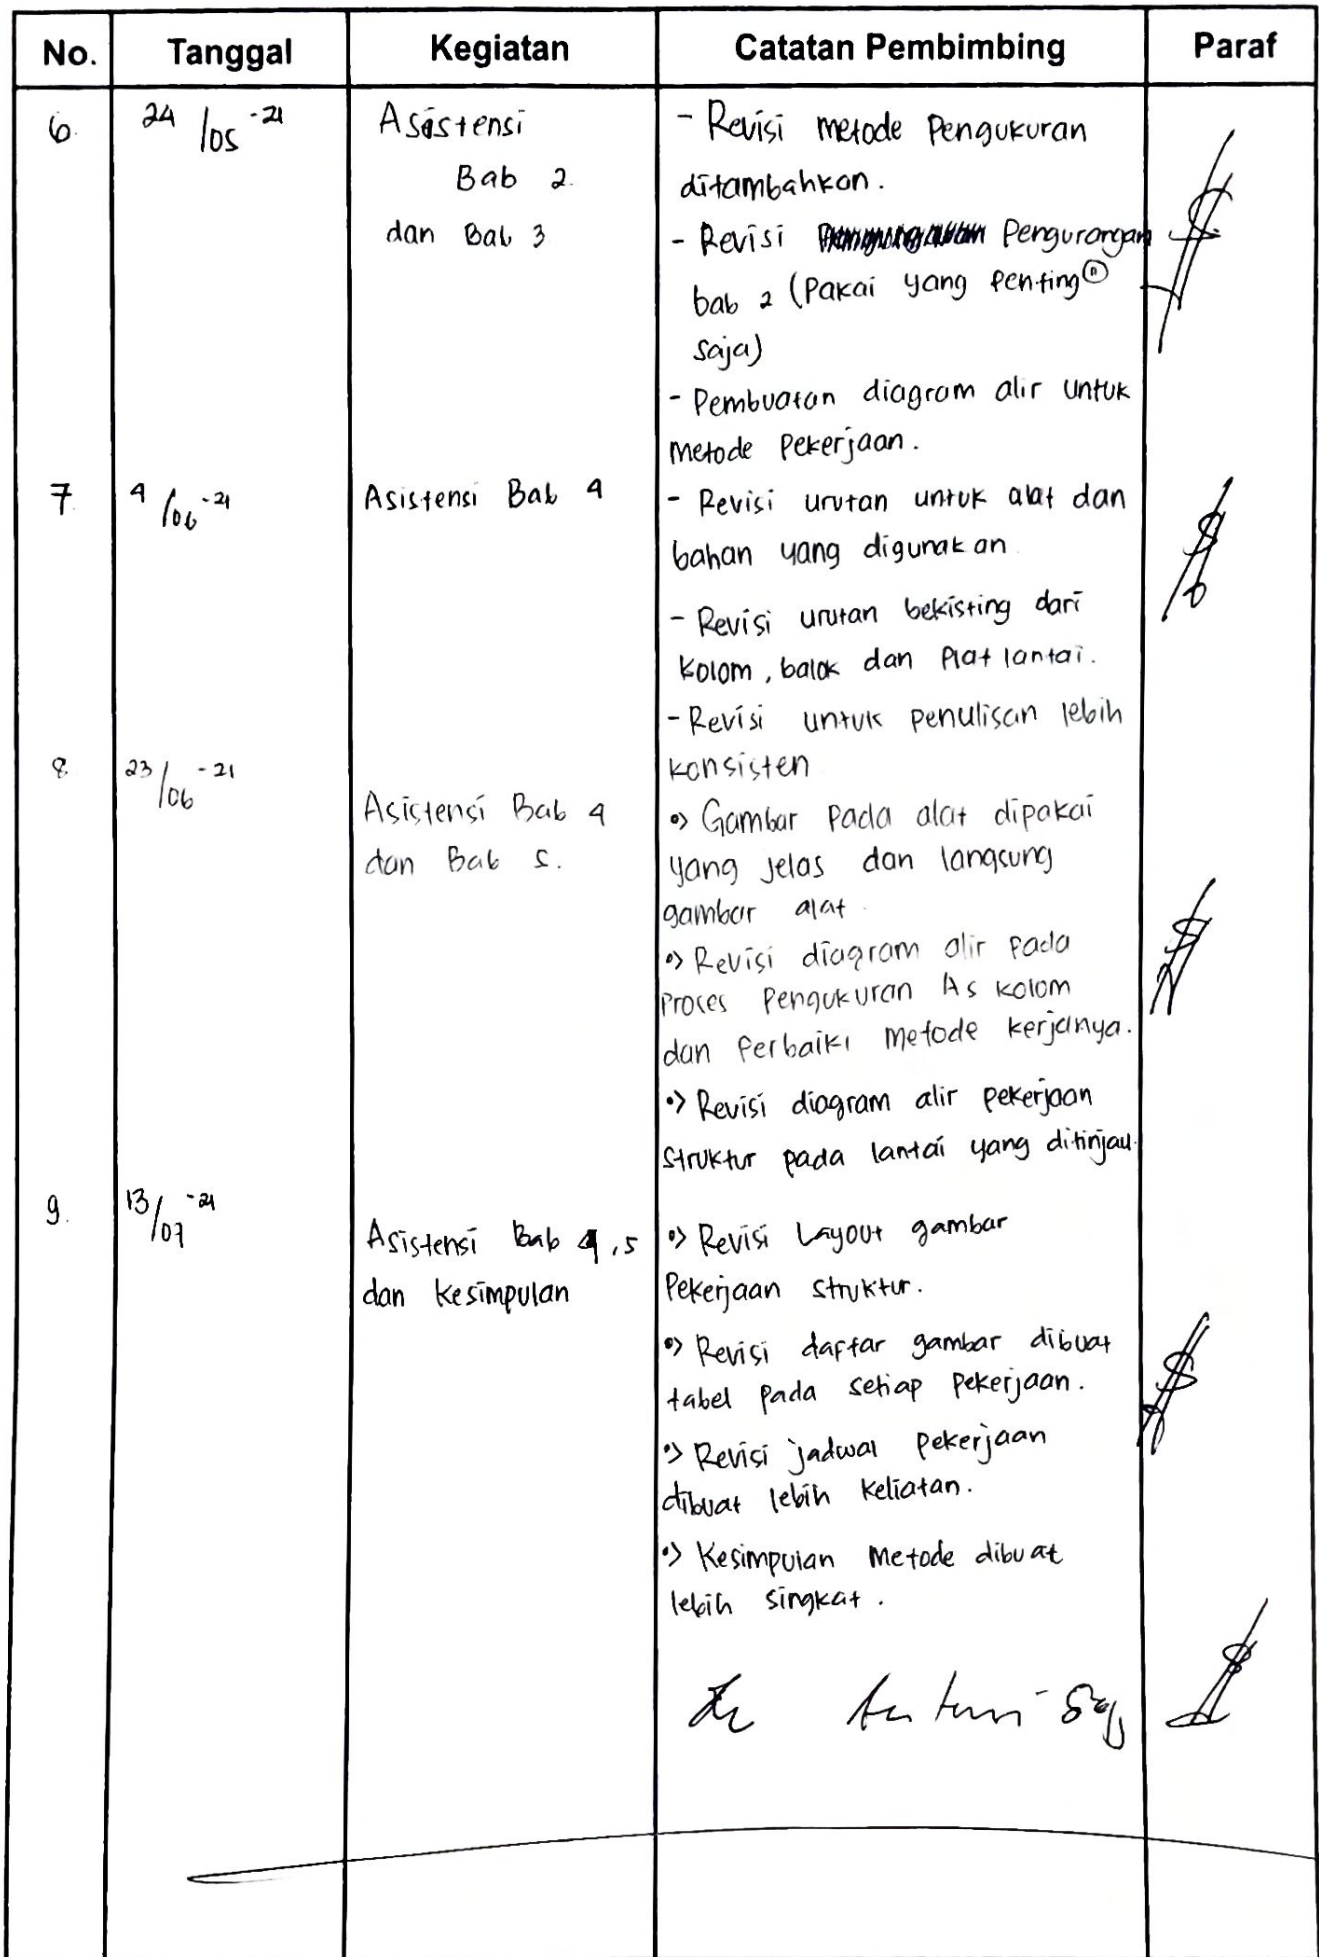 No. Tanggal Kegiatan Catatan Pembimbing Paraf
6. 24/05-21 Asistensi - Revisi metode Pengukuran
Bab 2. ditambahkan.
dan Bab 3 - Revisi Pengurangan
bab 2 (Pakai yang Penting
saja)
- Pembuatan diagram alir untuk
metode Pekerjaan.
7. 4/06-21 Asistensi Bab 4 - Revisi urutan untuk alat dan
bahan yang digunakan
- Revisi urutan bekisting dari
Kolom, balok dan Plat lantai.
- Revisi untuk penulisan lebih
8. 23/06-21 konsisten
Asistensi Bab 4 •> Gambar Pada alat dipakai
dan Bab 5. yang jelas dan langsung
gambar alat.
•> Revisi diagram alir Pada
Proses Pengukuran As kolom
dan Perbaiki metode kerjanya.
•> Revisi diagram alir pekerjaan
Struktur pada lantai yang ditinjau.
9. 13/07-21 Asistensi Bab 4,5 •> Revisi Layout gambar
dan kesimpulan Pekerjaan struktur.
•> Revisi daftar gambar dibuat
tabel pada setiap pekerjaan.
•> Revisi jadwal pekerjaan
dibuat lebih keliatan.
•> Kesimpulan Metode dibuat
lebih singkat.